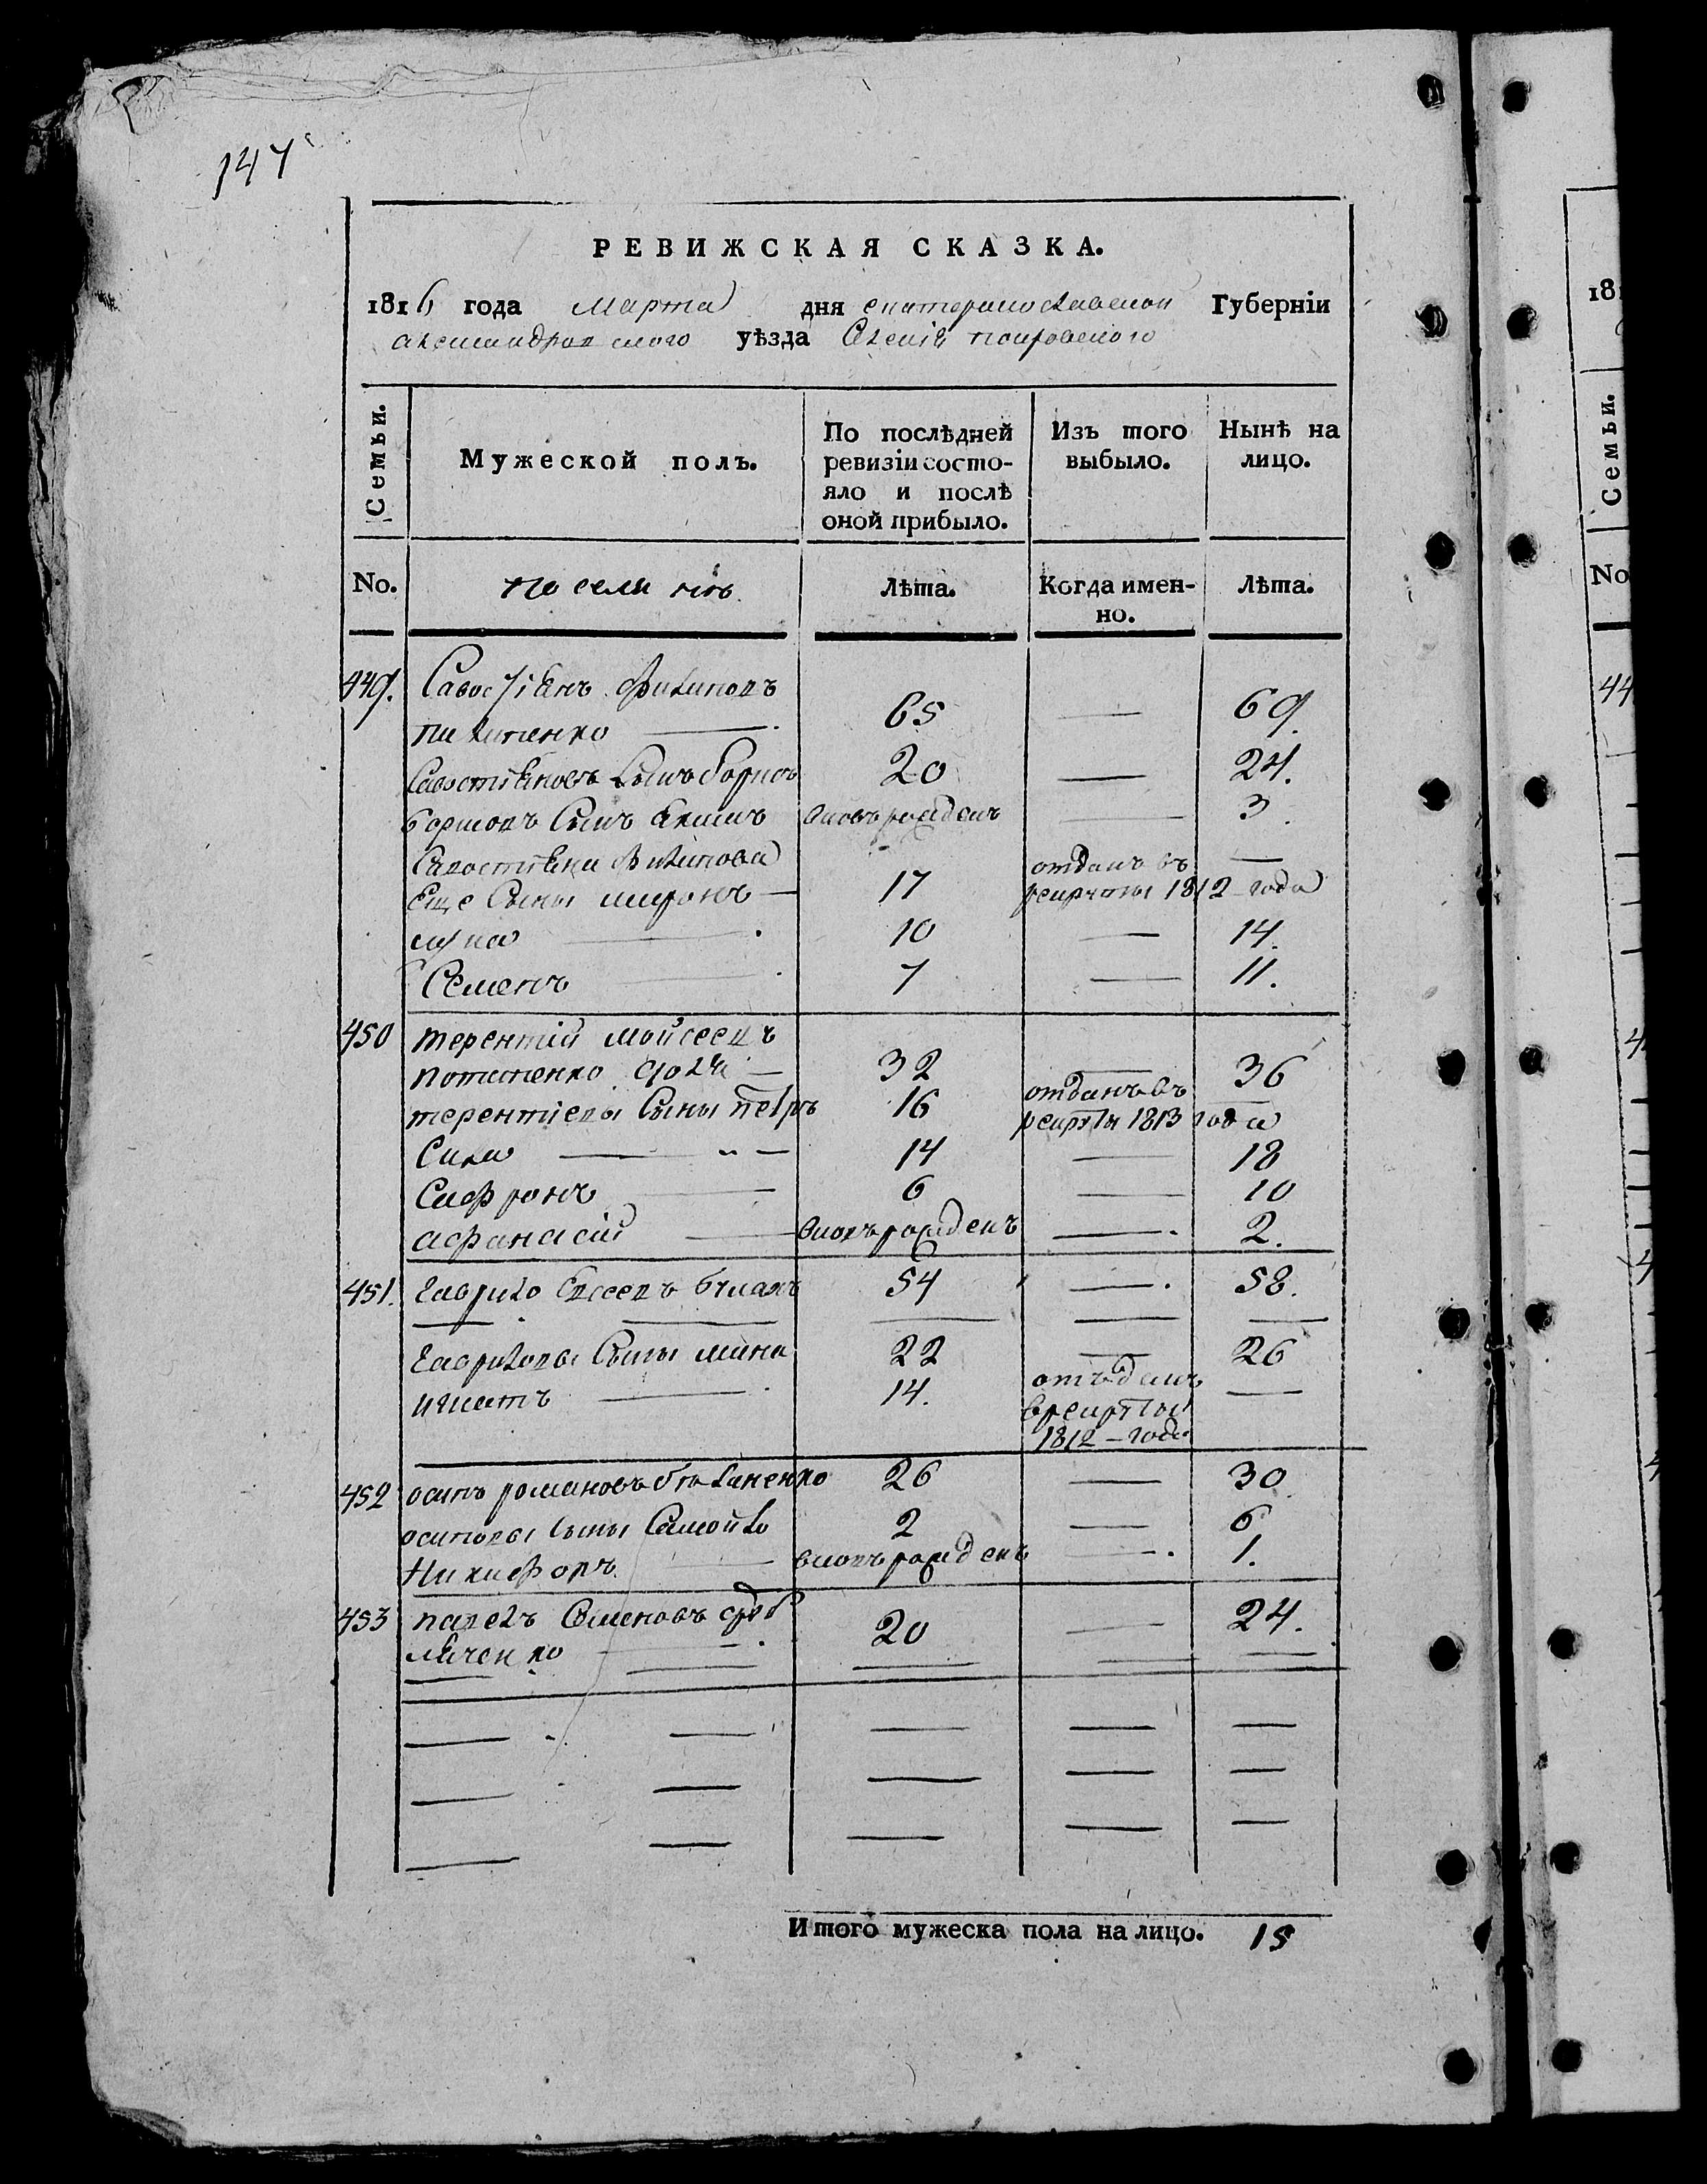 147
РЕВИЖСКАЯ СКАЗКА.
1816 года Марта дня екатеринославской Губерніи
александровского уѣзда Селенія покровского
Семьи.
Мужеской полъ.
По послѣдней ревизіи состо-
яло и послѣ
оной прибыло.
Изъ того
выбыло.
Нынѣ на
лицо.
No.
поселянъ
Лѣта.
Когда имен-
но.
Лѣта.
449. Савостіянъ Филиповъ
пилипенко 65 69.
Савостіяновъ Сынъ борисъ 20 24.
борисовъ Сынъ Якимъ вновьрожденъ 3.
Савостіяна Филипова отданъ въ
Еще Сыны миронъ 17 рекруты 1812 года
лука 10 14.
Семенъ 7 11.
450 терентій мойсеевъ
потапенко 32 36
терентіевы Сыны петръ 16 отданъ въ рекруты 1813 года
Сила 14 18
Сафронъ 6 10
афанасій вновьрожденъ 2.
451. Гаврило Евсеевъ 54 58.
Гавриловы Сыны мина 22 26
игнатъ 14. отъданъ
врекруты
1812 года
452 осипъ романовъ 26 30
осиповы Сыны Самойло 2 6
Никифоръ вновьрожденъ 1.
453 павелъ Семеновъ 20 24.
Итого мужеска пола на лицо. 15
18
Семьи.
No
44